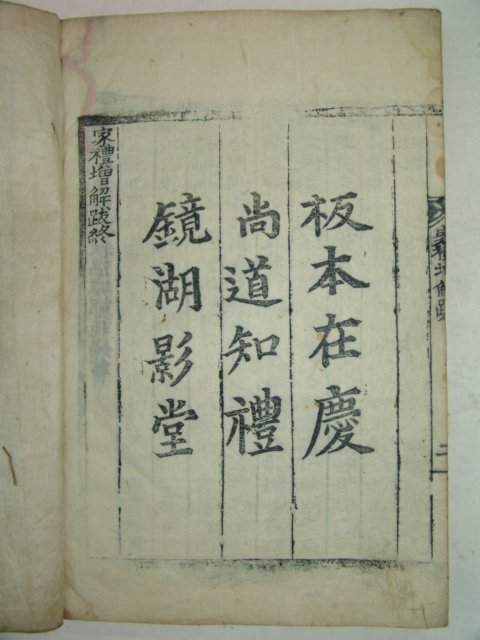 板本在慶
尚道知禮
鏡湖影堂
家禮增解跋終